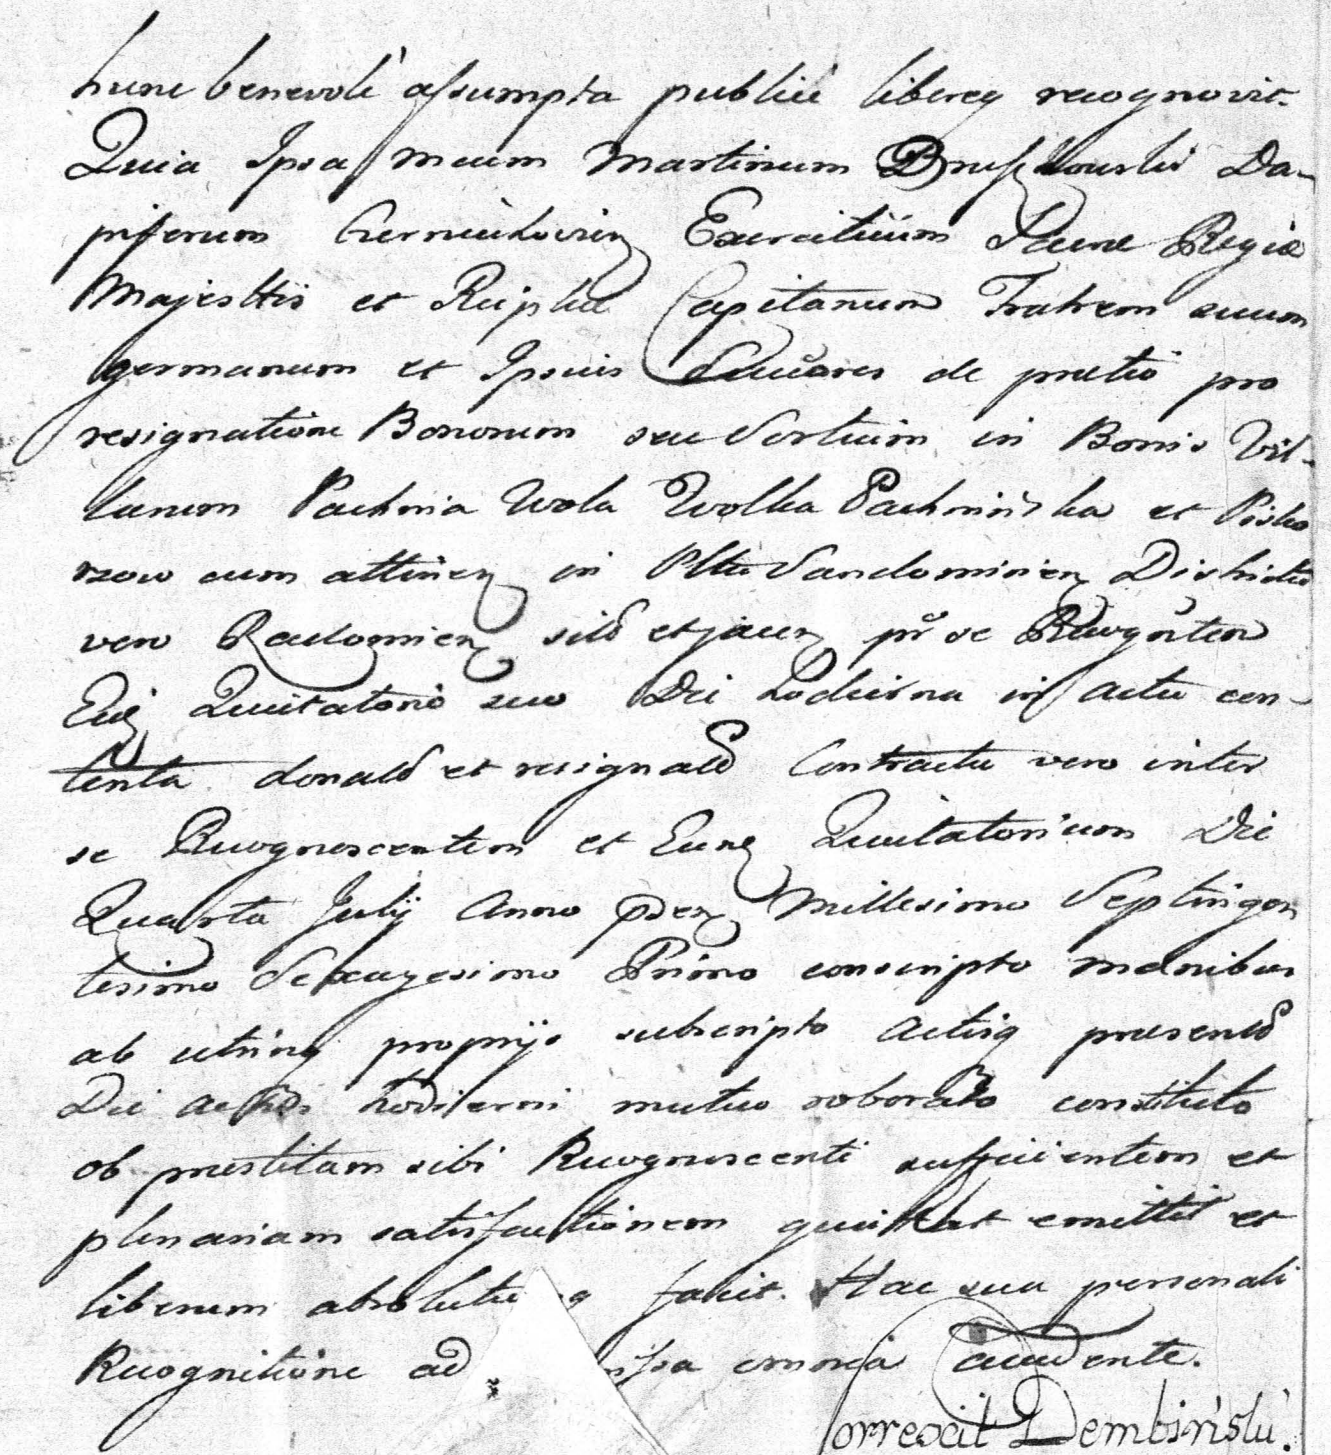 hunc benevole assumpta publice libereq recognovit.
Quia Ipsa mcum Martinum Bruszkowski Da-
piferum Czerniechovien Exercituum Sacrae Regiae
Majesttis et Reiplcae Capitanum Fratrem suum
germanum et Ipsius Succores de pretio pro
resignatione Bonorum seu Sortium in Bonis Vil-
larum Pachnia Wola Wolka Pachnińska et Pisko
rzow cum attinen in Pltu Sandomirien Districtu
vero Radomien sitd et jacen pr se Recognten
Eiq Quitatorio suo Die hodierna in actu con-
tenta donatd et resignatd Contractu vero inter
se Recognoscentem et Eunq Quitatorium Die
Quarta Julij Anno psen Millesimo Septingen
tesimo Sexagesimo Primo conscripto manibus
ab utrinq proprijs subscripto Actisq praesentd
Die hodierni mutuo roborato constituto
ob praestitam sibi Recognoscenti sufficientem et
plenariam satisfactionem quittat emittit et
liberum facit. Hac sua personali
Recognitione ad omnia accedente.
Correxit Dembiński.